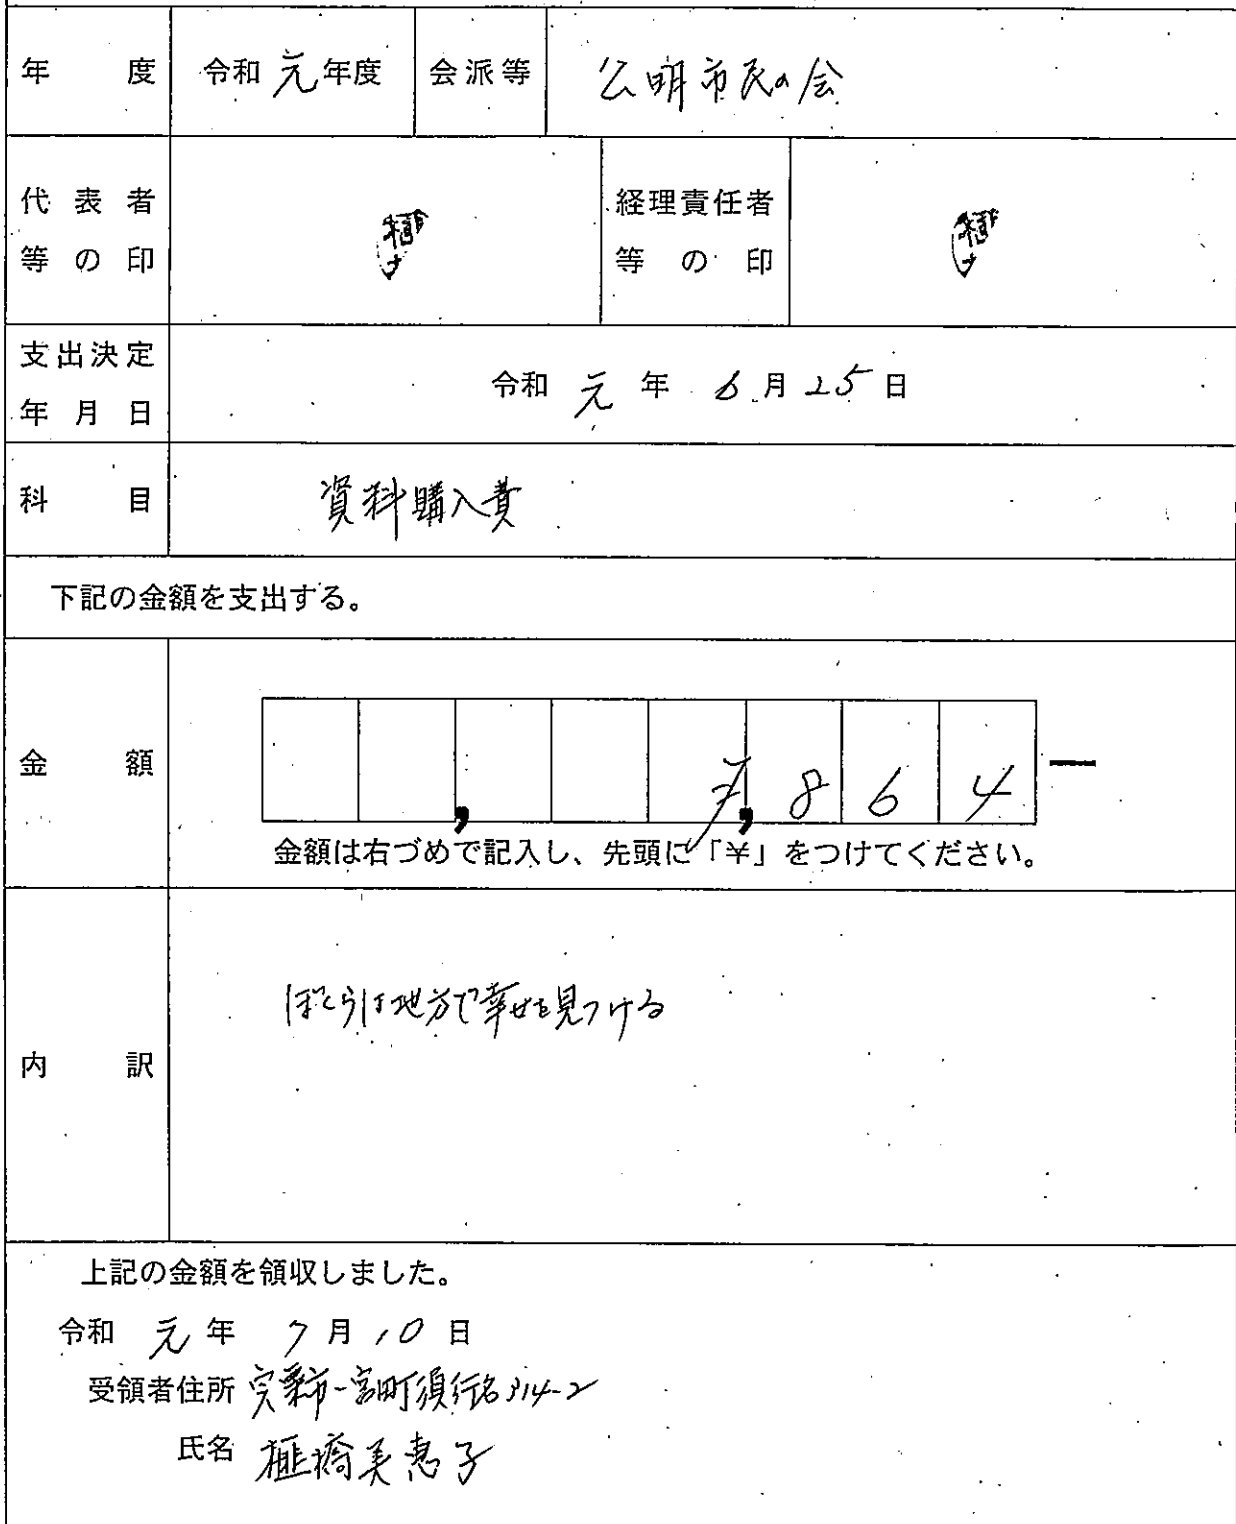 年度 令和元年度 会派等 公明市民の会
代表者 経理責任者
等の印 等の印
支出決定
年月日 令和元年6月25日
科目 資料購入費
下記の金額を支出する。
金額 ¥,864 ー
金額は右づめで記入し、先頭に「¥」をつけてください。
ぼくらは地方で幸せを見つける
内訳
上記の金額を領収しました。
令和元年7月10日
受領者住所 宍粟市一宮町須行名314-2
氏名 榧橋美恵子